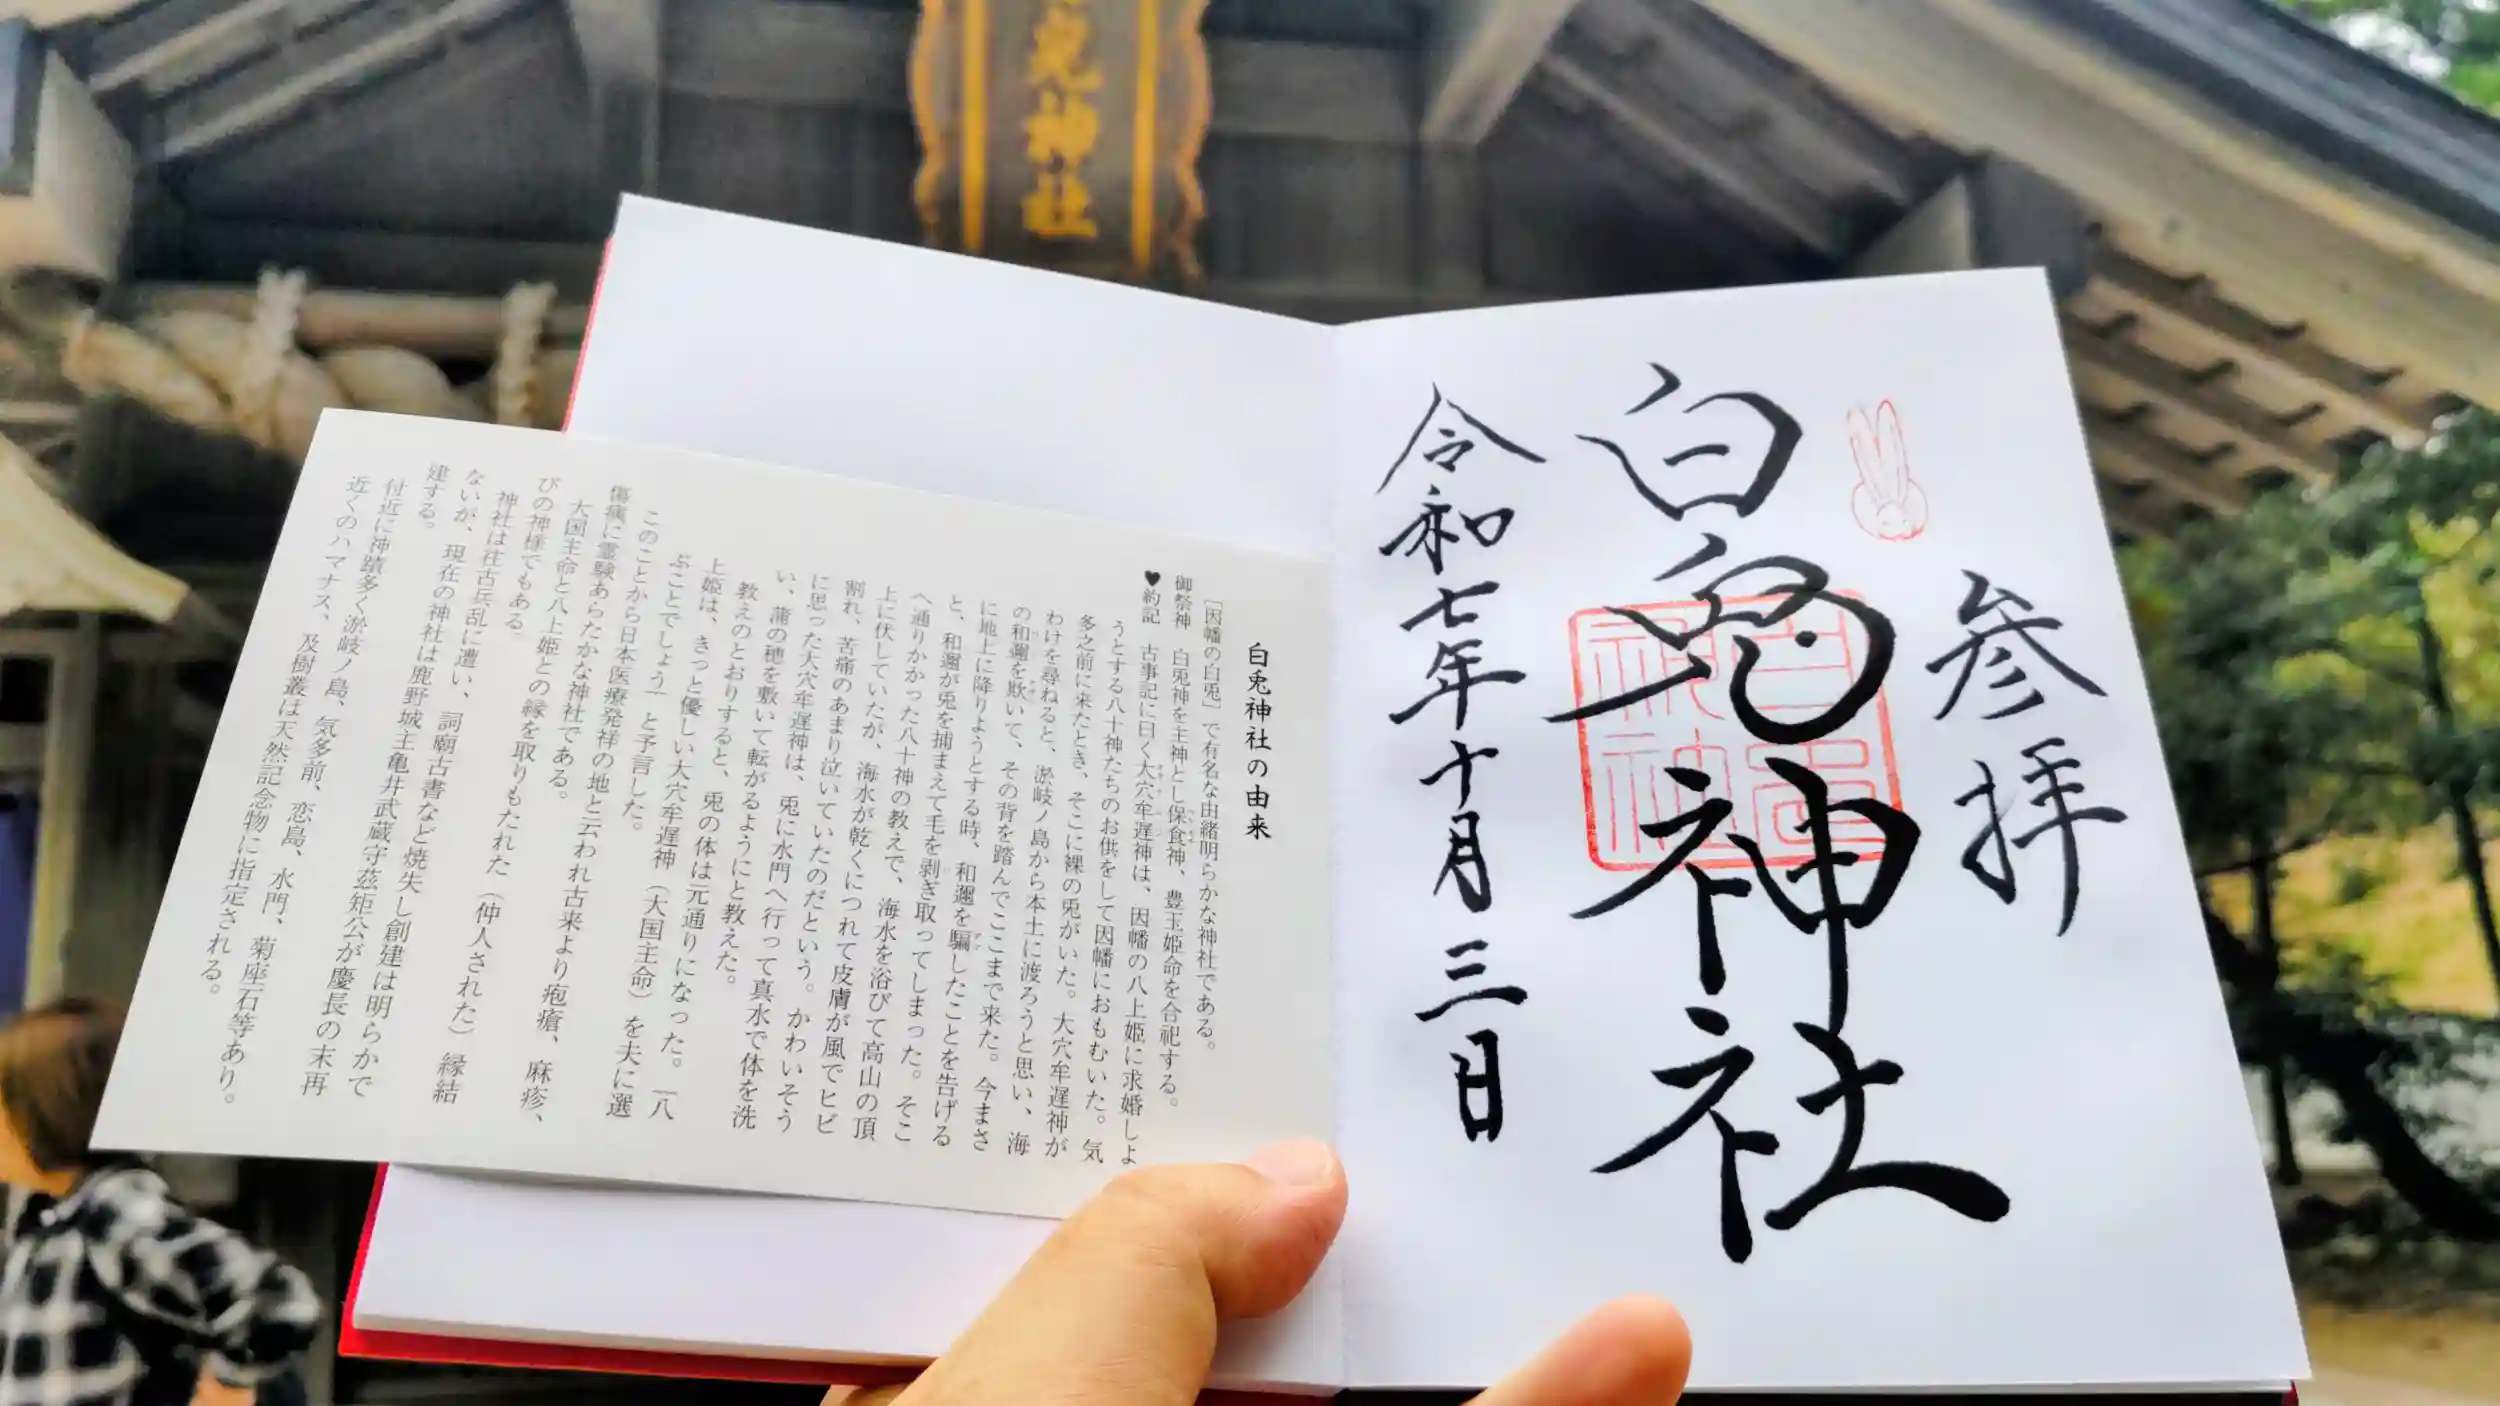 兎神社
参拝
白兎神社
令和七年十月三日
白兎神社
白兎神社の由来
「因幡の白兎」で有名な由緒明らかな神社である。
御祭神 白兎神を主神とし保食神、豊玉姫命を合祀する。
♥約記 古事記に曰く大穴牟遅神は、因幡の八上姫に求婚しよ
うとする八十神たちのお供をして因幡におもむいた。気
多之前に来たとき、そこに裸の兎がいた。大穴牟遅神が
わけを尋ねると、淤岐ノ島から本土に渡ろうと思い、海
の和邇を欺いて、その背を踏んでここまで来た。今まさ
に地上に降りようとする時、和邇を騙したことを告げる
と、和邇が兎を捕まえて毛を剥ぎ取ってしまった。そこ
へ通りかかった八十神の教えで、海水を浴びて高山の頂
上に伏していたが、海水が乾くにつれて皮膚が風でヒビ
割れ、苦痛のあまり泣いていたのだという。かわいそう
に思った大穴牟遅神は、兎に水門へ行って真水で体を洗
い、蒲の穂を敷いて転がるようにと教えた。
教えのとおりすると、兎の体は元通りになった。「八
上姫は、きっと優しい大穴牟遅神（大国主命）を夫に選
ぶことでしょう」と予言した。
このことから日本医療発祥の地と云われ古来より疱瘡、麻疹、
傷痍に霊験あらたかな神社である。
大国主命と八上姫との縁を取りもたれた（仲人された）縁結
びの神様でもある。
神社は往古兵乱に遭い、詞廟古書など焼失し創建は明らかで
ないが、現在の神社は鹿野城主亀井武蔵守茲矩公が慶長の末再
建する。
付近に神蹟多く淤岐ノ島、気多前、恋島、水門、菊座石等あり。
近くのハマナス、及樹叢は天然記念物に指定される。